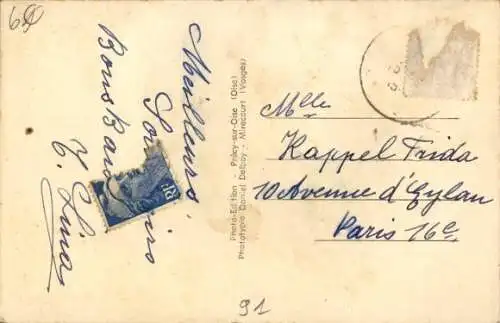 60
Meilleurs
Sou irs
Bons Bai
Y. Lina
RF
Photo-Edition - Précy-sur-Oise (Oise)
Phototypie Daniel Delboy - Mirecourt (Vosges)
Mlle
Kappel Frida
10 Avenue d'Eylau
Paris 16e.
91